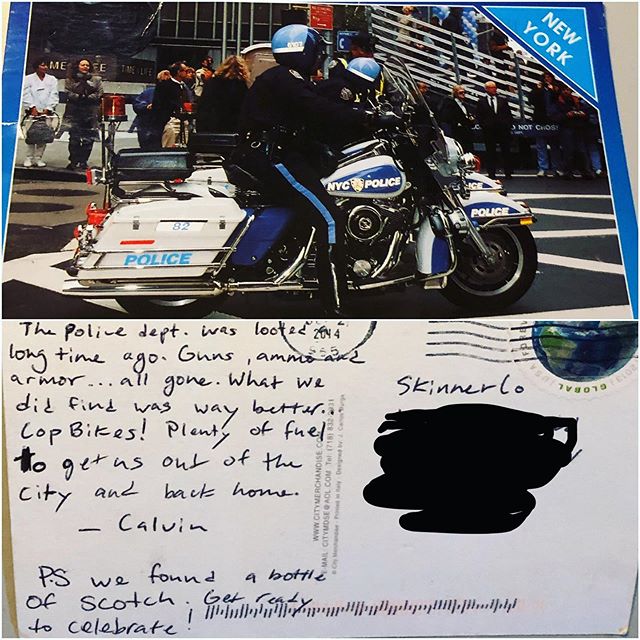 NEW
YORK
TIME & LIFE
DO NOT CROSS
NYC POLICE
POLICE
82
POLICE
The Police dept. was looted a
long time ago. Guns, ammo and
armor... all gone. What we
did find was way better.
Cop Bikes! Plenty of fuel
to get us out of the
city and back home.
— Calvin
P.S we found a bottle
of scotch. Get ready
to celebrate!
2014
SkinnerCo
GLOBAL
WWW.CITYMERCHANDISE.COM
E-MAIL: CITYMDSE@AOL.COM Tel: (718) 832
© City Merchandise · Printed in Italy · Designed by: J.